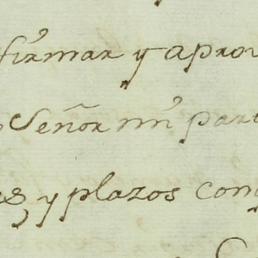 firmar y apro
Señor mi par
y plazos con